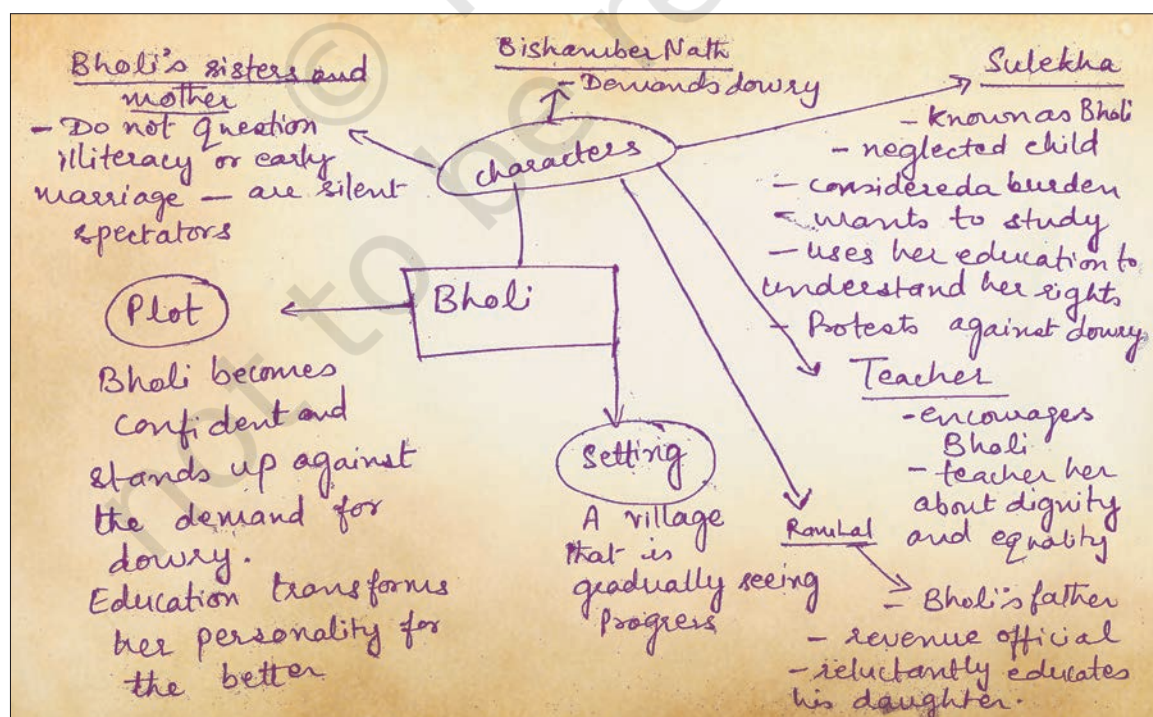 Bholi's sisters and
mother
- Do not question
illiteracy or early
marriage - are silent
spectators
Bishamber Nath
- Demands dowry
Sulekha
- known as Bholi
- neglected child
- considered a burden
- wants to study
- uses her education to
understand her rights
- Protests against dowry
Characters
Bholi
Plot
Bholi becomes
confident and
stands up against
the demand for
dowry.
Education transforms
her personality for
the better
Setting
A village
that is
gradually seeing
Progress
Teacher
- encourages
Bholi
- teacher her
about dignity
and equality
Ramlal
- Bholi's father
- revenue official
- reluctantly educates
his daughter.
©
not to be r